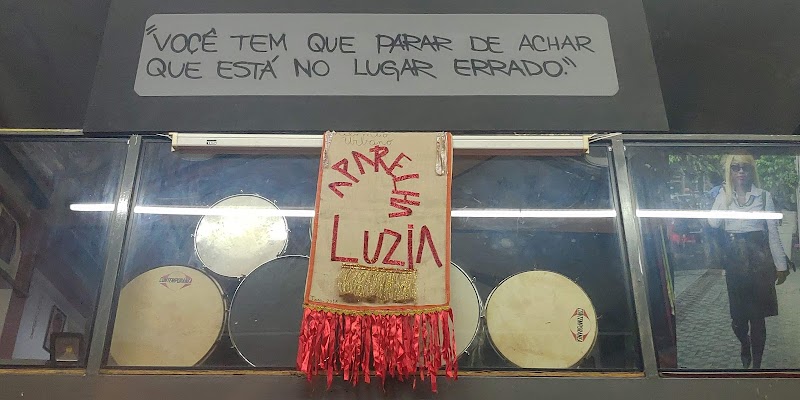 "VOCÊ TEM QUE PARAR DE ACHAR
QUE ESTÁ NO LUGAR ERRADO."
Urbano
APARELHA
LUZIA
CONTEMPORÂNEA
CONTEMPORÂNEA